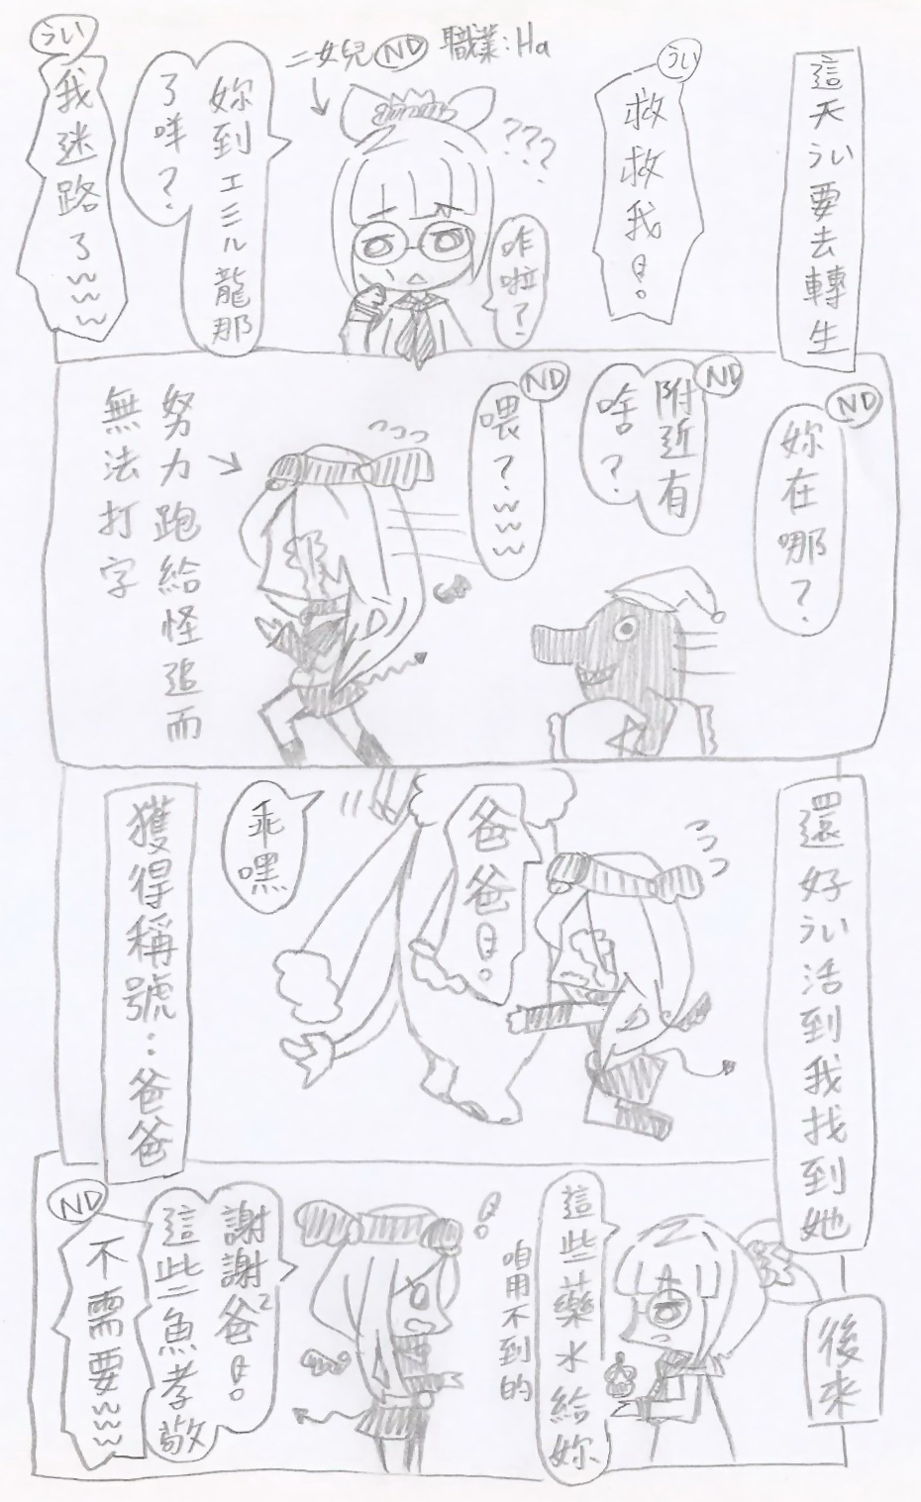 這天うい要去轉生
うい
救救我!。
???
咋啦?
職業:Ha
二女兒 ND
妳到エミル龍那
了咩?
うい
我迷路了www
ND
妳在哪?
ND
附近有
啥?
ND
喂?www
努力跑給怪追而
無法打字
還好うい活到我找到她
爸爸!。
乖嘿
獲得稱號:爸爸
後來
這些藥水給妳
咱用不到的
謝謝爸2!。
這些魚孝敬
ND
不需要www